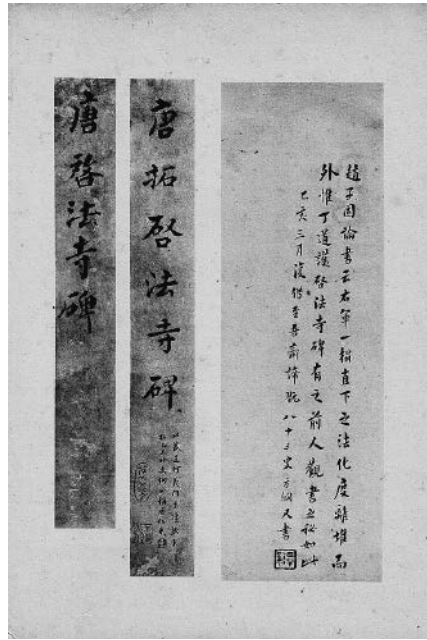 趙子固論書云右軍一搨直下之法化度離堆而
外惟丁道護啓法寺碑有之前人觀書之秘如此
乙亥三月復借至吾齋諦翫八十三叟方綱又書
唐拓啓法寺碑
唐啓法寺碑